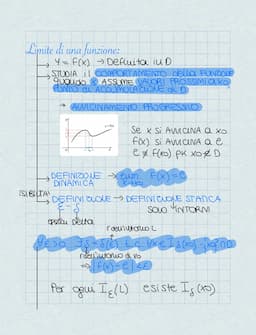 Limite di una funzione:
→ y = f(x) → Definita in D
→ STUDIA il COMPORTAMENTO DELLA FUNZIONE
QUANDO X ASSUME VALORI PROSSIMI AD X0
PUNTO DI ACCUMULAZIONE DI D
→ AVVICINAMENTO PROGRESSIVO
Se x si AVVICINA a x0
f(x) si AVVICINA a ℓ
e ≠ f(x0) perché x0 ∉ D
→ DEFINIZIONE → lim f(x) = ℓ
DINAMICA x→x0
→ DEFINIZIONE → DEFINIZIONE STATICA
ε - δ SOLO INTORNI
epsilon delta
∀ε>0 ∃δ=δ(ε) t.c. ∀x∈ I (x0) - x0 ∩ D
δ
→ |f(x) - ℓ| < ε
Per ogni I (L) esiste I (x0)
ε δ